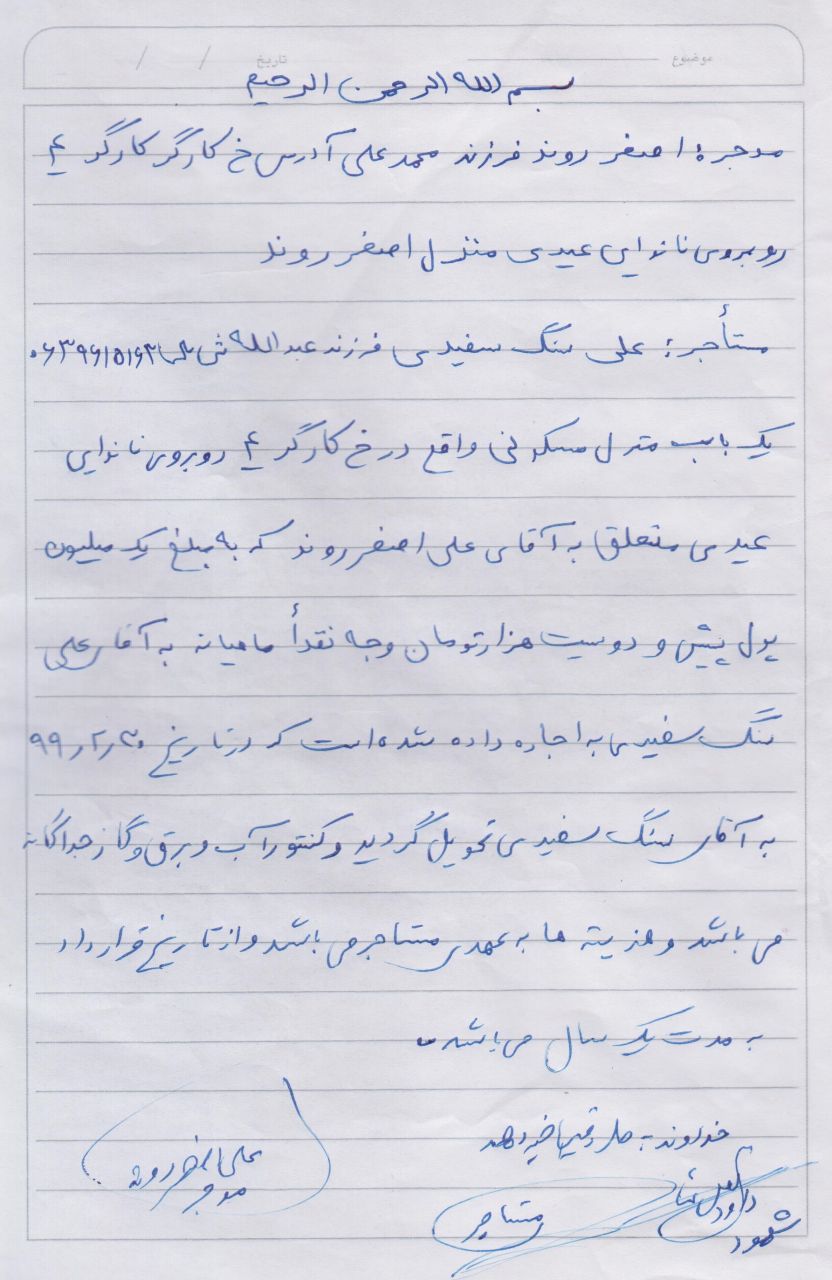 موضوع
تاریخ / /
بسم الله الرحمن الرحیم
موجر: اصغر روند فرزند محمد علی آدرس خ کارگر کارگر ۴
روبروی نانوایی عیدی منزل اصغر روند
مستأجر: علی سنگ سفیدی فرزند عبدالله
یک باب منزل مسکونی واقع در خ کارگر ۴ روبروی نانوایی
عیدی متعلق به آقای علی اصغر روند که به مبلغ یک میلیون
پول پیش و دویست هزار تومان وجه نقداً ماهیانه به آقای علی
سنگ سفیدی به اجاره داده شده است که در تاریخ ۹۹٫۲٫۲۰
به آقای سنگ سفیدی تحویل گردید و کنتور آب و برق و گاز جداگانه
می باشد و هزینه ها به عهدی مستاجر می باشد و از تاریخ قرارداد
به مدت یک سال می باشد.
خداوند به خیر دهد
علی اصغر روند
موجر
مستاجر
شهود